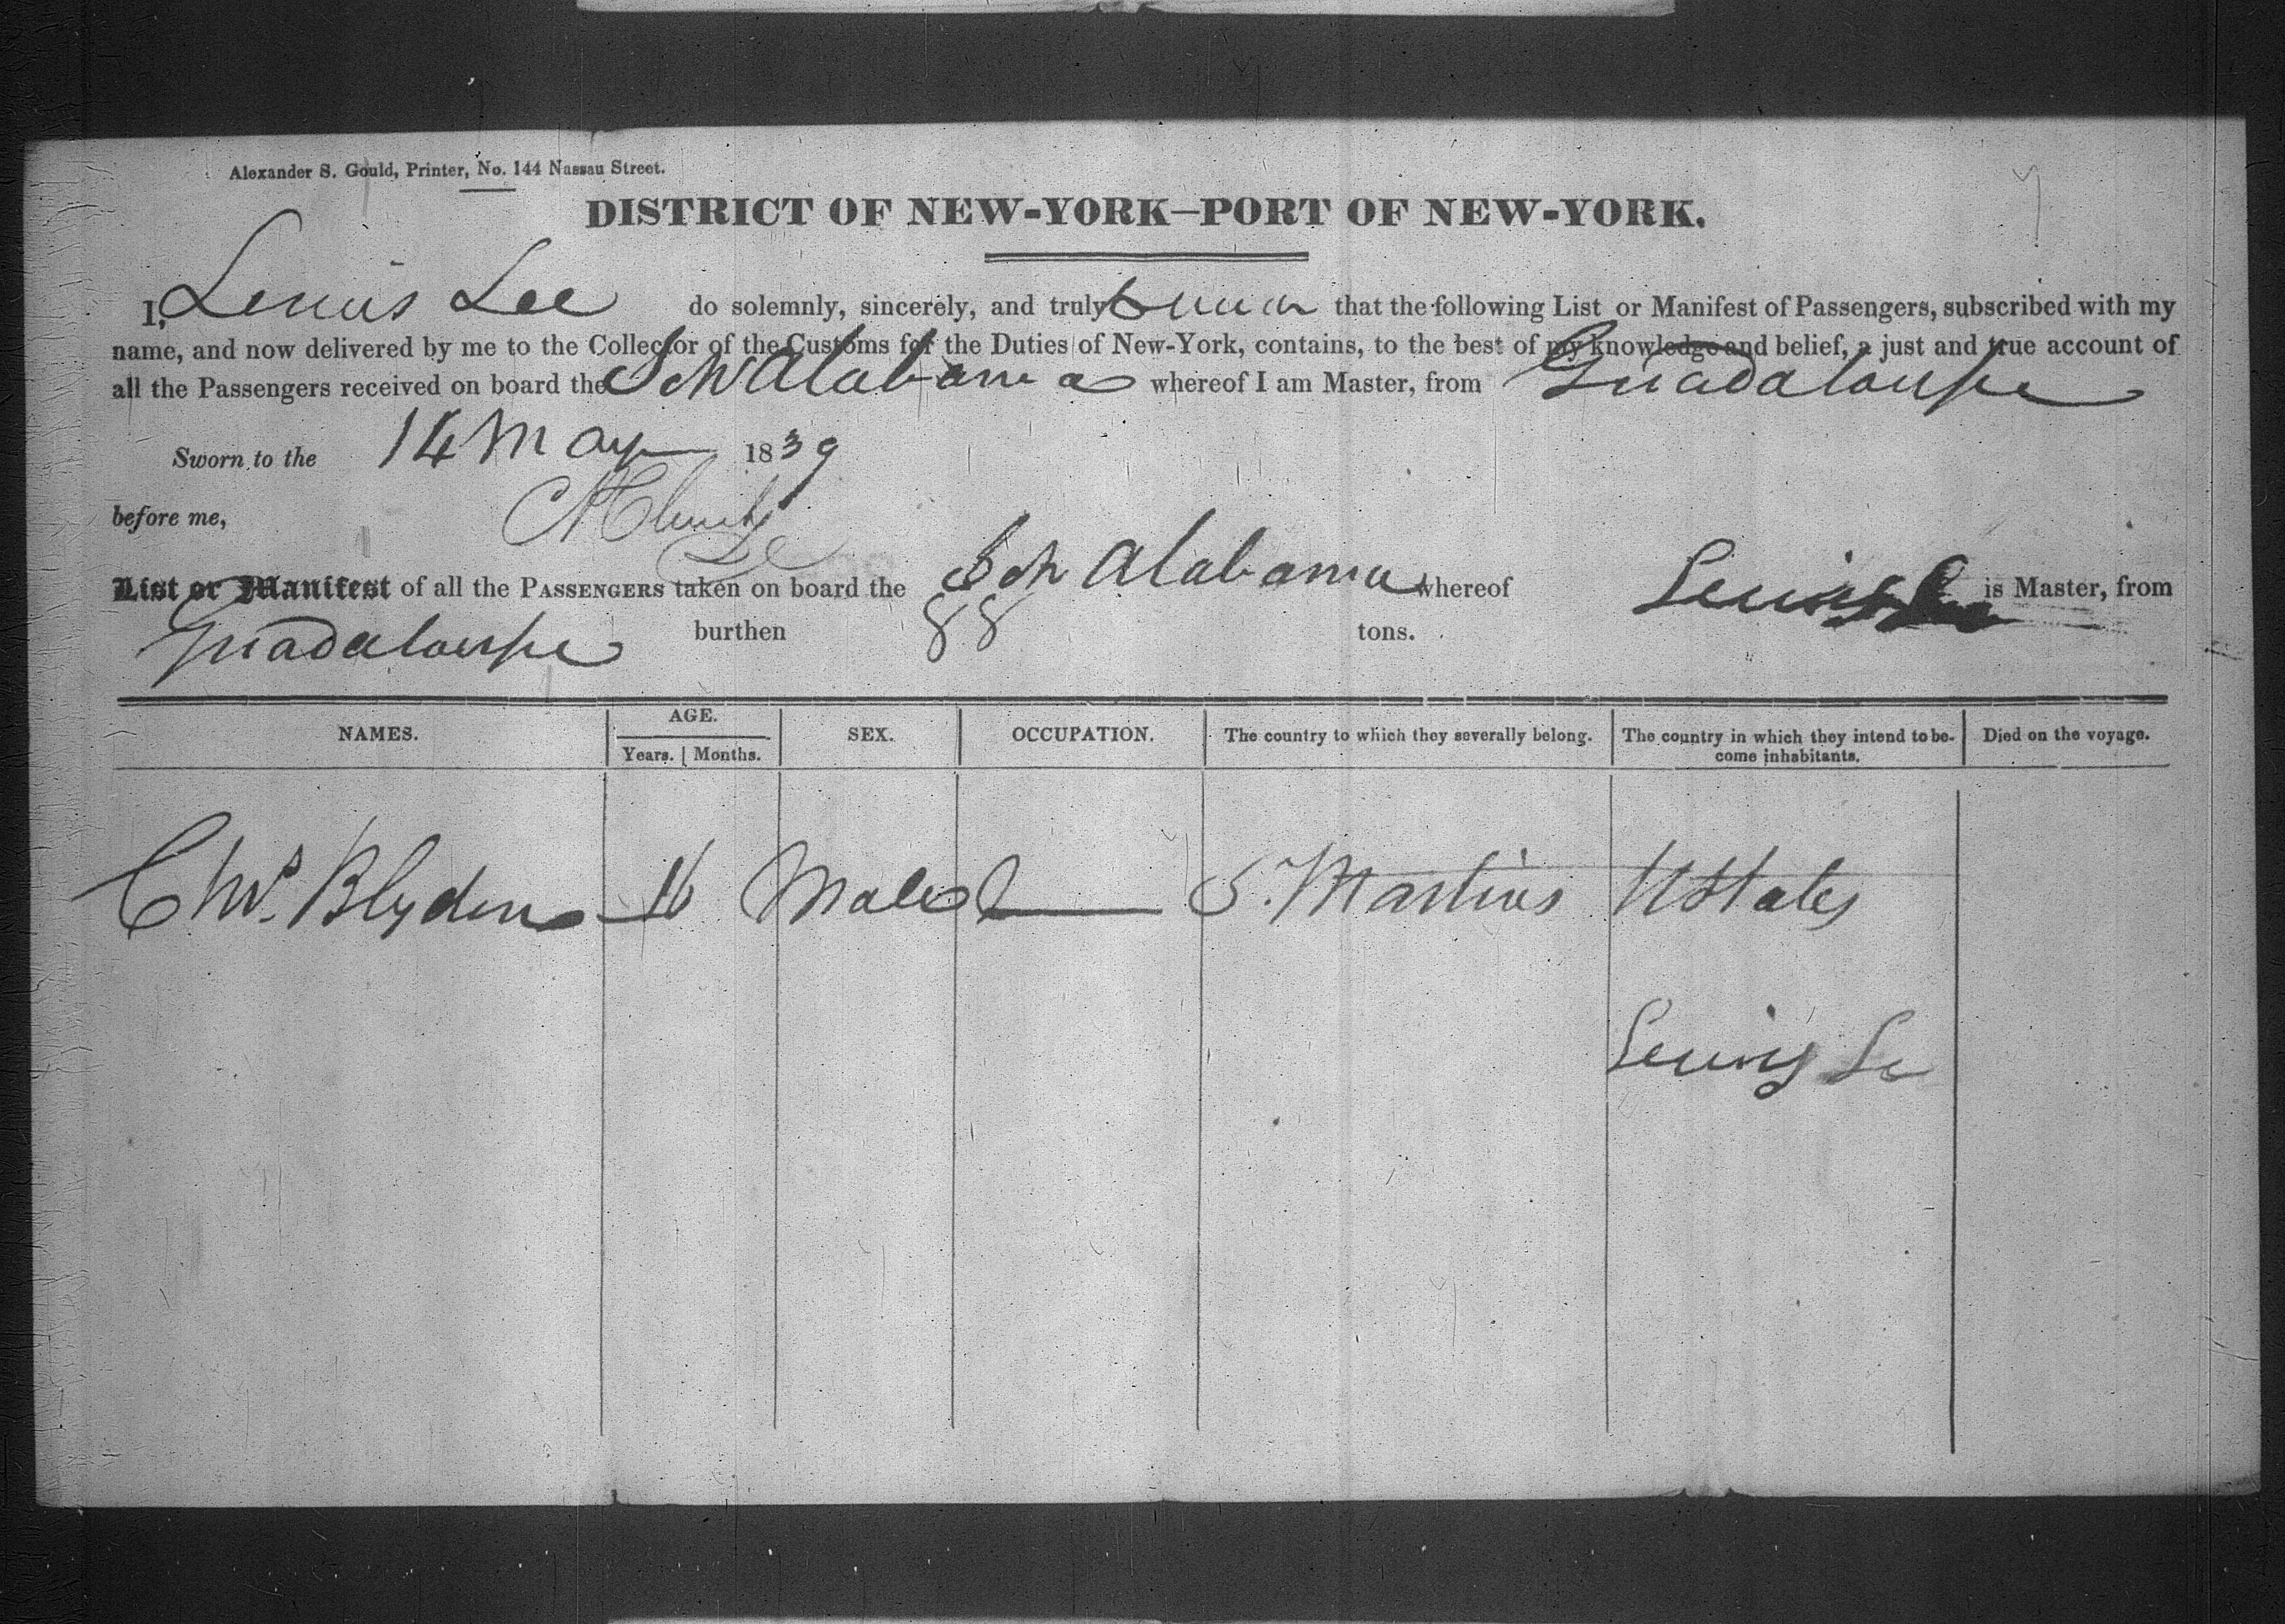 Alexander S. Gould, Printer, No. 144 Nassau Street.
DISTRICT OF NEW-YORK—PORT OF NEW-YORK.
I, Lewis Lee do solemnly, sincerely, and truly swear that the following List or Manifest of Passengers, subscribed with my
name, and now delivered by me to the Collector of the Customs for the Duties of New-York, contains, to the best of my knowledge and belief, a just and true account of
all the Passengers received on board the Sch Alabama whereof I am Master, from Guadaloupe
Sworn to the 14 May 1839
before me,
List or Manifest of all the PASSENGERS taken on board the Sch Alabama whereof Lewis Lee is Master, from
Guadaloupe burthen 88 tons.
NAMES. AGE. SEX. OCCUPATION. The country to which they severally belong. The country in which they intend to be- Died on the voyage.
Years. Months. come inhabitants.
Chs. Blyden 16 Male S. Martins U States
Lewis Lee